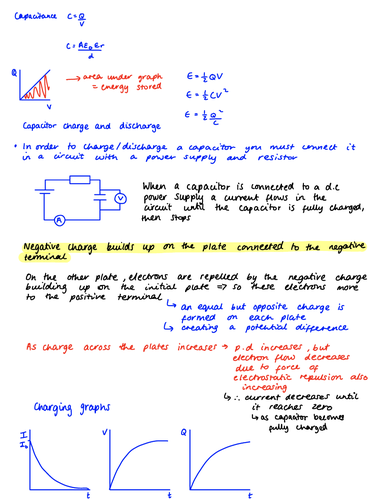 Capacitance C = Q/V
C = Aε₀εr/d
Q
V
→ area under graph
= energy stored
E = ½QV
E = ½CV²
E = ½Q²/C
Capacitor charge and discharge
• In order to charge/discharge a capacitor you must connect it
in a circuit with a power supply and resistor
V
A
When a capacitor is connected to a d.c
power supply a current flows in the
circuit until the capacitor is fully charged,
then stops
Negative charge builds up on the plate connected to the negative
terminal
On the other plate, electrons are repelled by the negative charge
building up on the initial plate ⇒ so these electrons move
to the positive terminal
↳ an equal but opposite charge is
formed on each plate
↳ creating a potential difference
As charge across the plates increases → p.d increases, but
electron flow decreases
due to force of
electrostatic repulsion also
increasing
↳ ∴ current decreases until
it reaches zero
↳ as capacitor becomes
fully charged
Charging graphs
I
I₀
t
V
t
Q
t